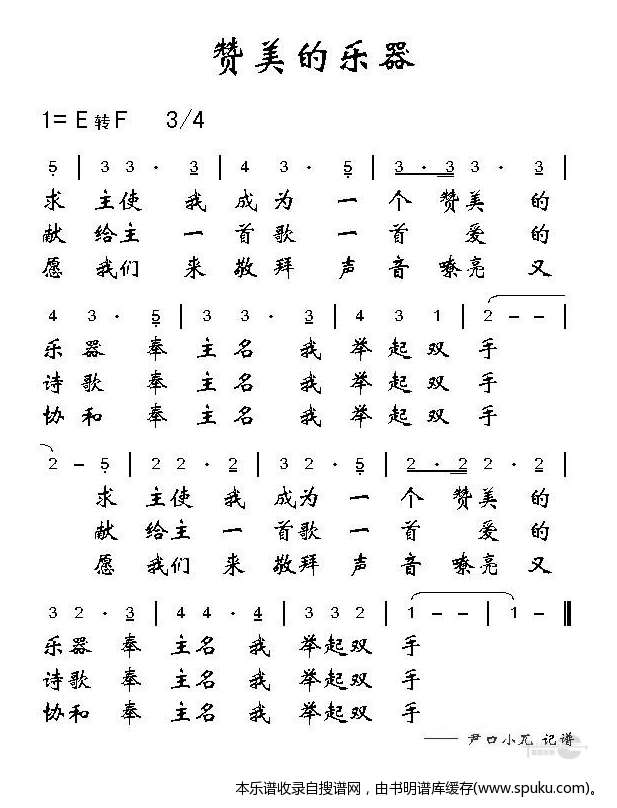 赞美的乐器
1= E转F 3/4
5 | 3 3· 3 | 4 3· 5 | 3·3 3· 3 |
求 主使 我 成为 一 个 赞美 的
献 给主 一 首歌 一 首 爱的
愿 我们 来 敬拜 声 音 嘹亮 又
4 3· 5 | 3 3· 3 | 4 3 1 | 2 - - |
乐器 奉 主名 我 举起双 手
诗歌 奉 主名 我 举起双 手
协和 奉 主名 我 举起双 手
2 - 5 | 2 2· 2 | 3 2· 5 | 2·2 2· 2 |
求 主使 我 成为 一 个 赞美 的
献 给主 一 首歌 一 首 爱的
愿 我们 来 敬拜 声 音 嘹亮 又
3 2· 3 | 4 4· 4 | 3 3 2 | 1 - - | 1 - ‖
乐器 奉 主名 我 举起双 手
诗歌 奉 主名 我 举起双 手
协和 奉 主名 我 举起双 手
—— 尹口小瓦 记谱
本乐谱收录自搜谱网，由书明谱库缓存(www.spuku.com)。